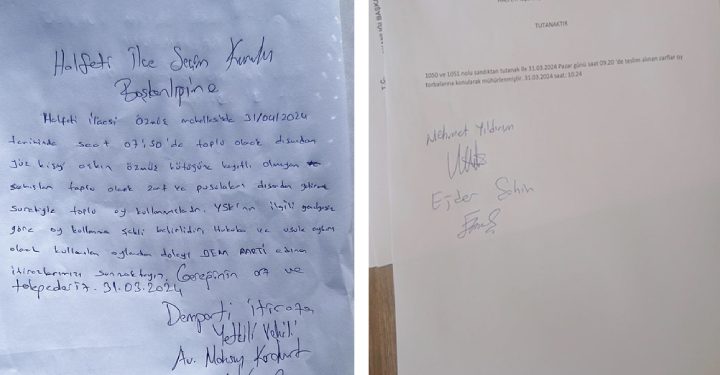 Halfeti İlçe Seçim Kurulu
Başkanlığına
Halfeti ilçesi Özmüş mahallesinde 31/04/2024
tarihinde saat 07:30'da toplu olarak dışardan
yüz kişiyi aşkın özmüş kütüğüne kayıtlı olmayan
şahısları toplu olarak zarf ve pusulaları dışardan getirme
suretiyle toplu oy kullanmaktadır. YSK'nın ilgili
göre oy kullanma şekli bellidir. Hukuka ve usule aykırı
olarak kullanılan oylardan dolayı DEM PARTİ adına
itirazlarımızı sunmaktayız. Gereğinin arz ve
talep ederiz. 31.03.2024
Demparti itiraza
Yetkili Vekili
Av.
T.C.
TUTANAKTIR
1050 ve 1051 nolu sandıktan tutanak ile 31.03.2024 Pazar günü saat 09.20 'de teslim alınan zarflar oy
torbalarına konularak mühürlenmiştir. 31.03.2024 saat: 10:24
Mehmet Yıldırım
Ejder Şahin